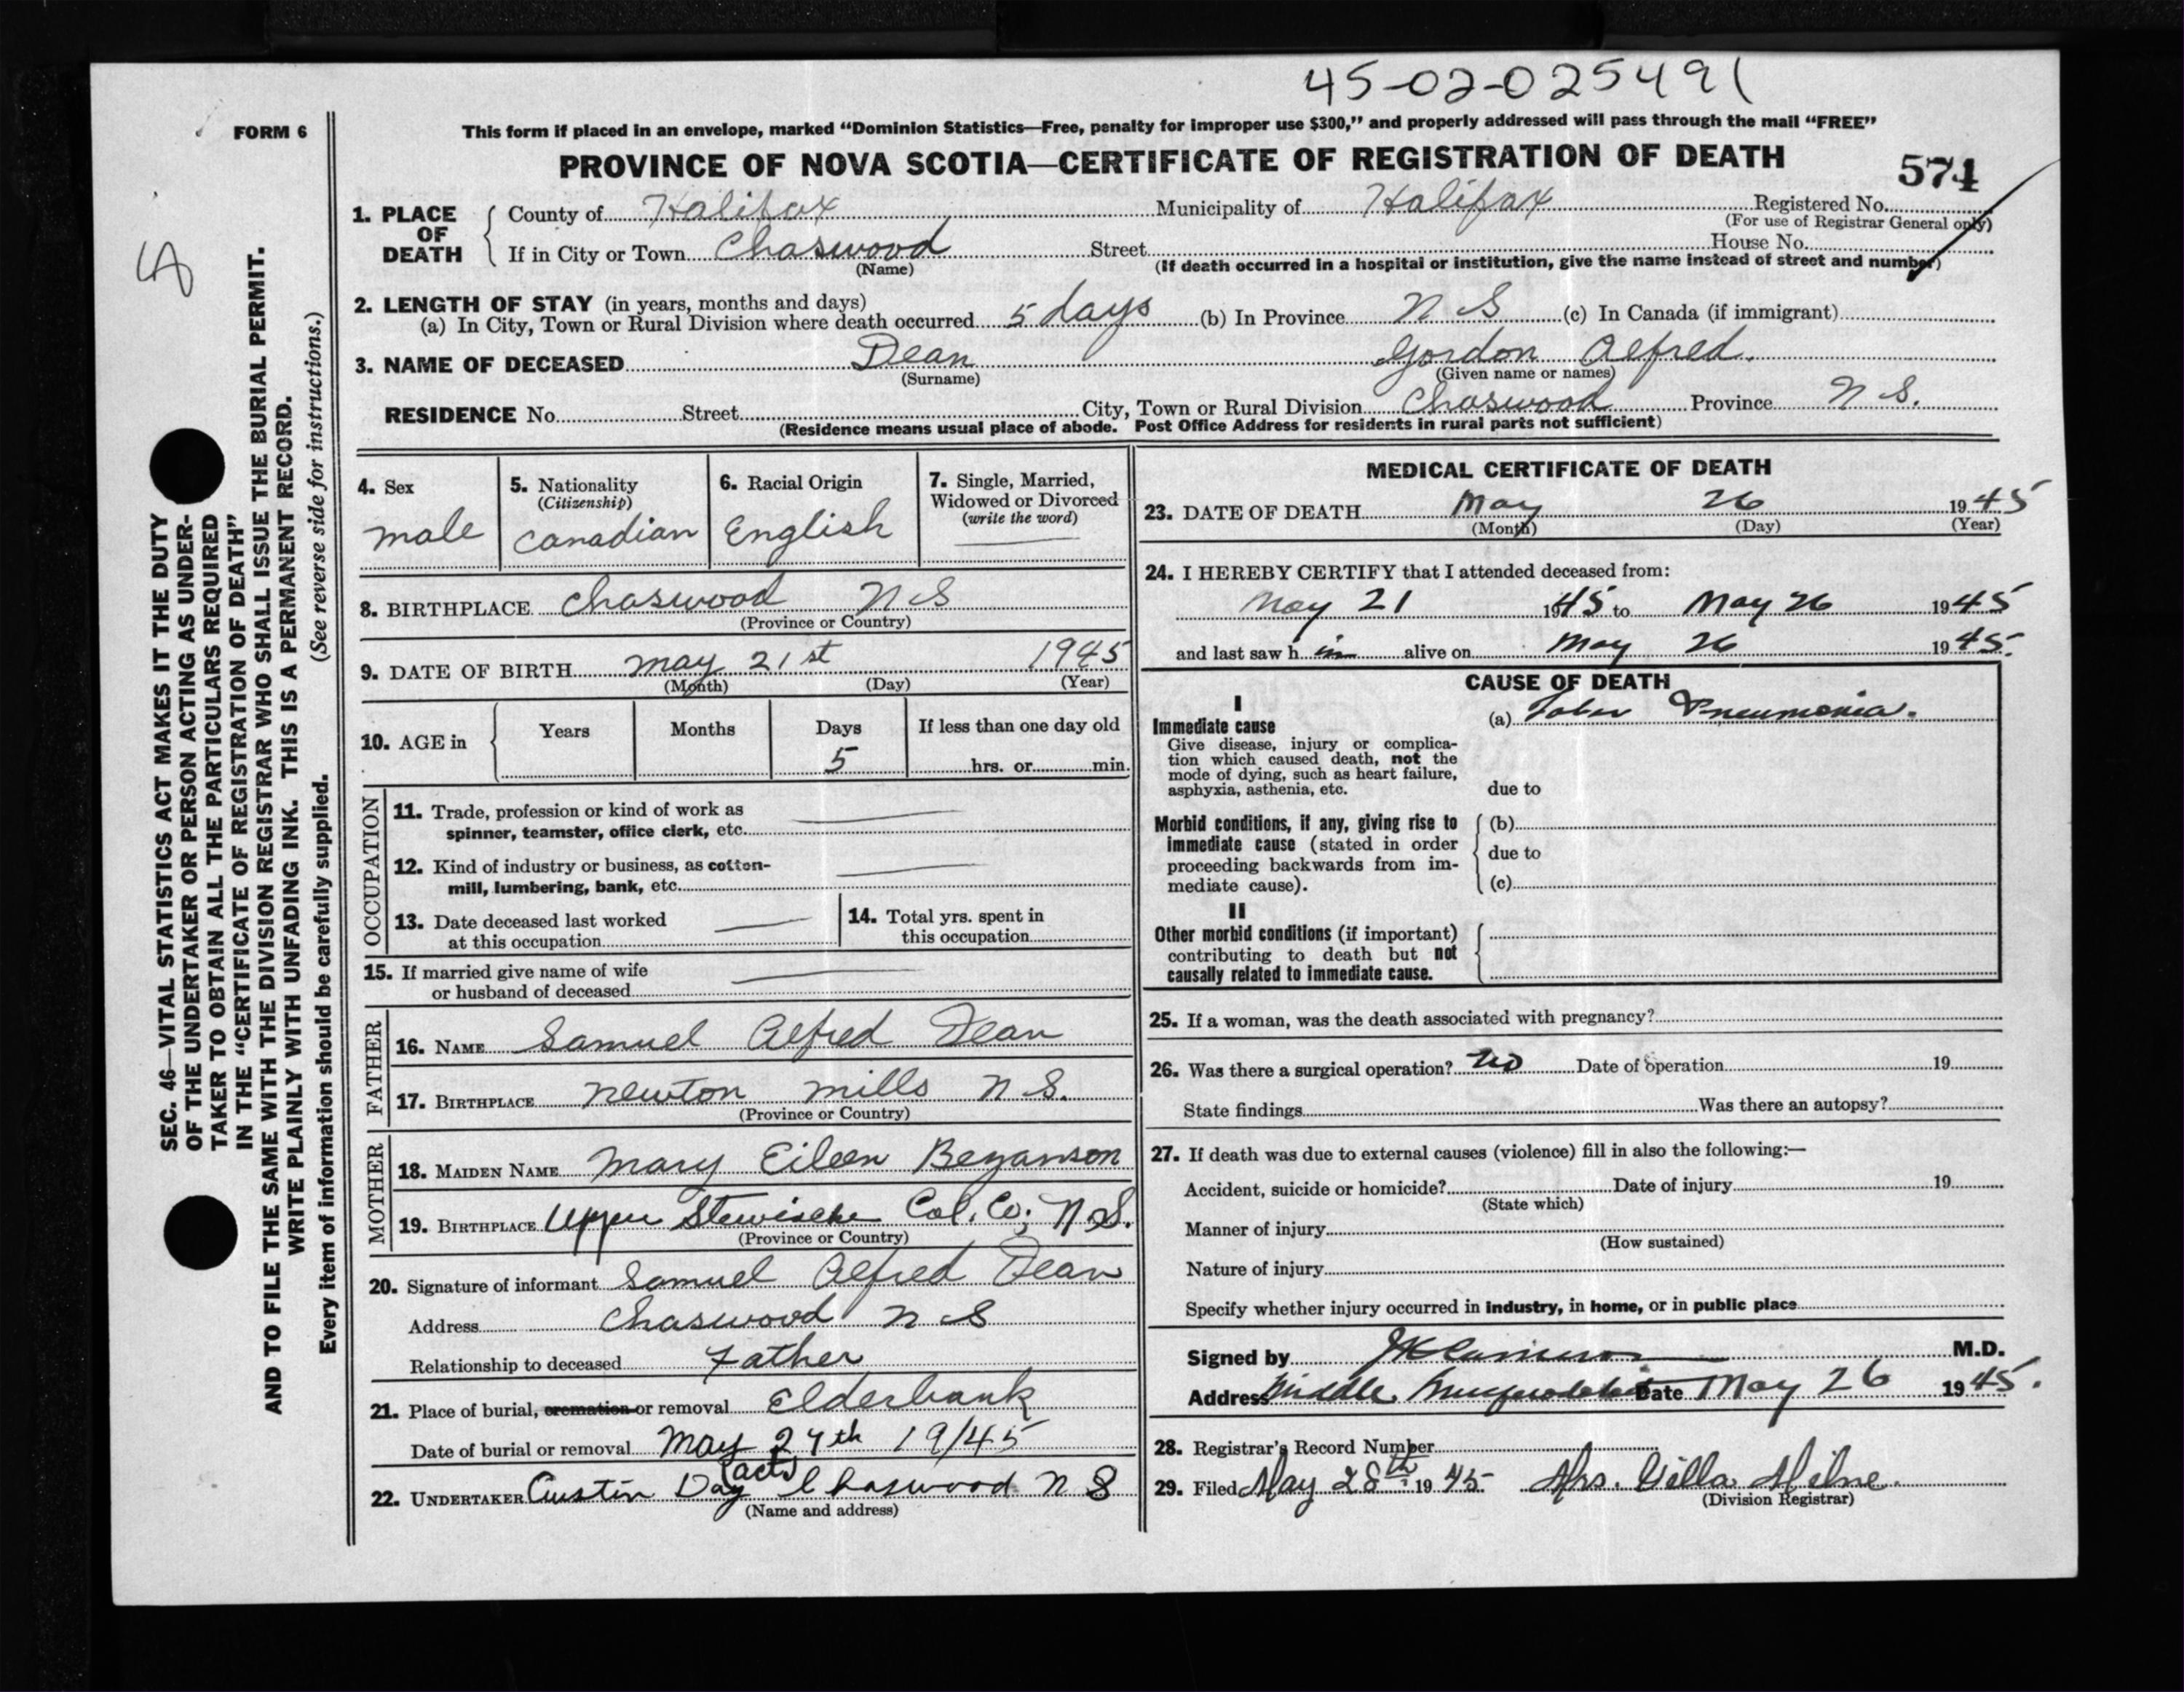 45-02-025491
FORM 6
This form if placed in an envelope, marked “Dominion Statistics—Free, penalty for improper use $300,” and properly addressed will pass through the mail “FREE”
PROVINCE OF NOVA SCOTIA—CERTIFICATE OF REGISTRATION OF DEATH
574
1. PLACE OF DEATH
County of Halifax Municipality of Halifax Registered No.
(For use of Registrar General only)
If in City or Town Chaswood Street House No.
(Name) (If death occurred in a hospital or institution, give the name instead of street and number)
2. LENGTH OF STAY (in years, months and days)
(a) In City, Town or Rural Division where death occurred 5 days (b) In Province N S (c) In Canada (if immigrant)
3. NAME OF DECEASED Dean Gordon Alfred.
(Surname) (Given name or names)
RESIDENCE No. Street City, Town or Rural Division Chaswood Province N S.
(Residence means usual place of abode. Post Office Address for residents in rural parts not sufficient)
4. Sex
male
5. Nationality
(Citizenship)
Canadian
6. Racial Origin
English
7. Single, Married,
Widowed or Divorced
(write the word)
8. BIRTHPLACE Chaswood N S
(Province or Country)
9. DATE OF BIRTH May 21st 1945
(Month) (Day) (Year)
10. AGE in
Years Months Days If less than one day old
5 hrs. or min.
OCCUPATION
11. Trade, profession or kind of work as
spinner, teamster, office clerk, etc.
12. Kind of industry or business, as cotton-
mill, lumbering, bank, etc.
13. Date deceased last worked
at this occupation
14. Total yrs. spent in
this occupation
15. If married give name of wife
or husband of deceased
FATHER
16. NAME Samuel Alfred Dean
17. BIRTHPLACE Newton Mills N S.
(Province or Country)
MOTHER
18. MAIDEN NAME Mary Eileen Bezanson
19. BIRTHPLACE Upper Stewiacke Col. Co; N S.
(Province or Country)
20. Signature of informant Samuel Alfred Dean
Address Chaswood N S
Relationship to deceased Father
21. Place of burial, cremation or removal Elderbank
Date of burial or removal May 27th 19/45
(act)
22. UNDERTAKER Austin Day Chaswood N S
(Name and address)
MEDICAL CERTIFICATE OF DEATH
23. DATE OF DEATH May 26 1945
(Month) (Day) (Year)
24. I HEREBY CERTIFY that I attended deceased from:
May 21 1945 to May 26 1945
and last saw h im alive on May 26 1945.
CAUSE OF DEATH
I
Immediate cause
Give disease, injury or complica-
tion which caused death, not the
mode of dying, such as heart failure,
asphyxia, asthenia, etc.
(a) Lobar Pneumonia.
due to
Morbid conditions, if any, giving rise to
immediate cause (stated in order
proceeding backwards from im-
mediate cause).
(b)
due to
(c)
II
Other morbid conditions (if important)
contributing to death but not
causally related to immediate cause.
25. If a woman, was the death associated with pregnancy?
26. Was there a surgical operation? No Date of operation 19
State findings Was there an autopsy?
27. If death was due to external causes (violence) fill in also the following:—
Accident, suicide or homicide? Date of injury 19
(State which)
Manner of injury
(How sustained)
Nature of injury
Specify whether injury occurred in industry, in home, or in public place
Signed by M.D.
Address Middle Musquodoboit Date May 26 1945.
28. Registrar's Record Number
29. Filed May 28th 1945 Mrs. Villa Milne.
(Division Registrar)
SEC. 46—VITAL STATISTICS ACT MAKES IT THE DUTY
OF THE UNDERTAKER OR PERSON ACTING AS UNDER-
TAKER TO OBTAIN ALL THE PARTICULARS REQUIRED
IN THE “CERTIFICATE OF REGISTRATION OF DEATH”
AND TO FILE THE SAME WITH THE DIVISION REGISTRAR WHO SHALL ISSUE THE BURIAL PERMIT.
WRITE PLAINLY WITH UNFADING INK. THIS IS A PERMANENT RECORD.
Every item of information should be carefully supplied. (See reverse side for instructions.)